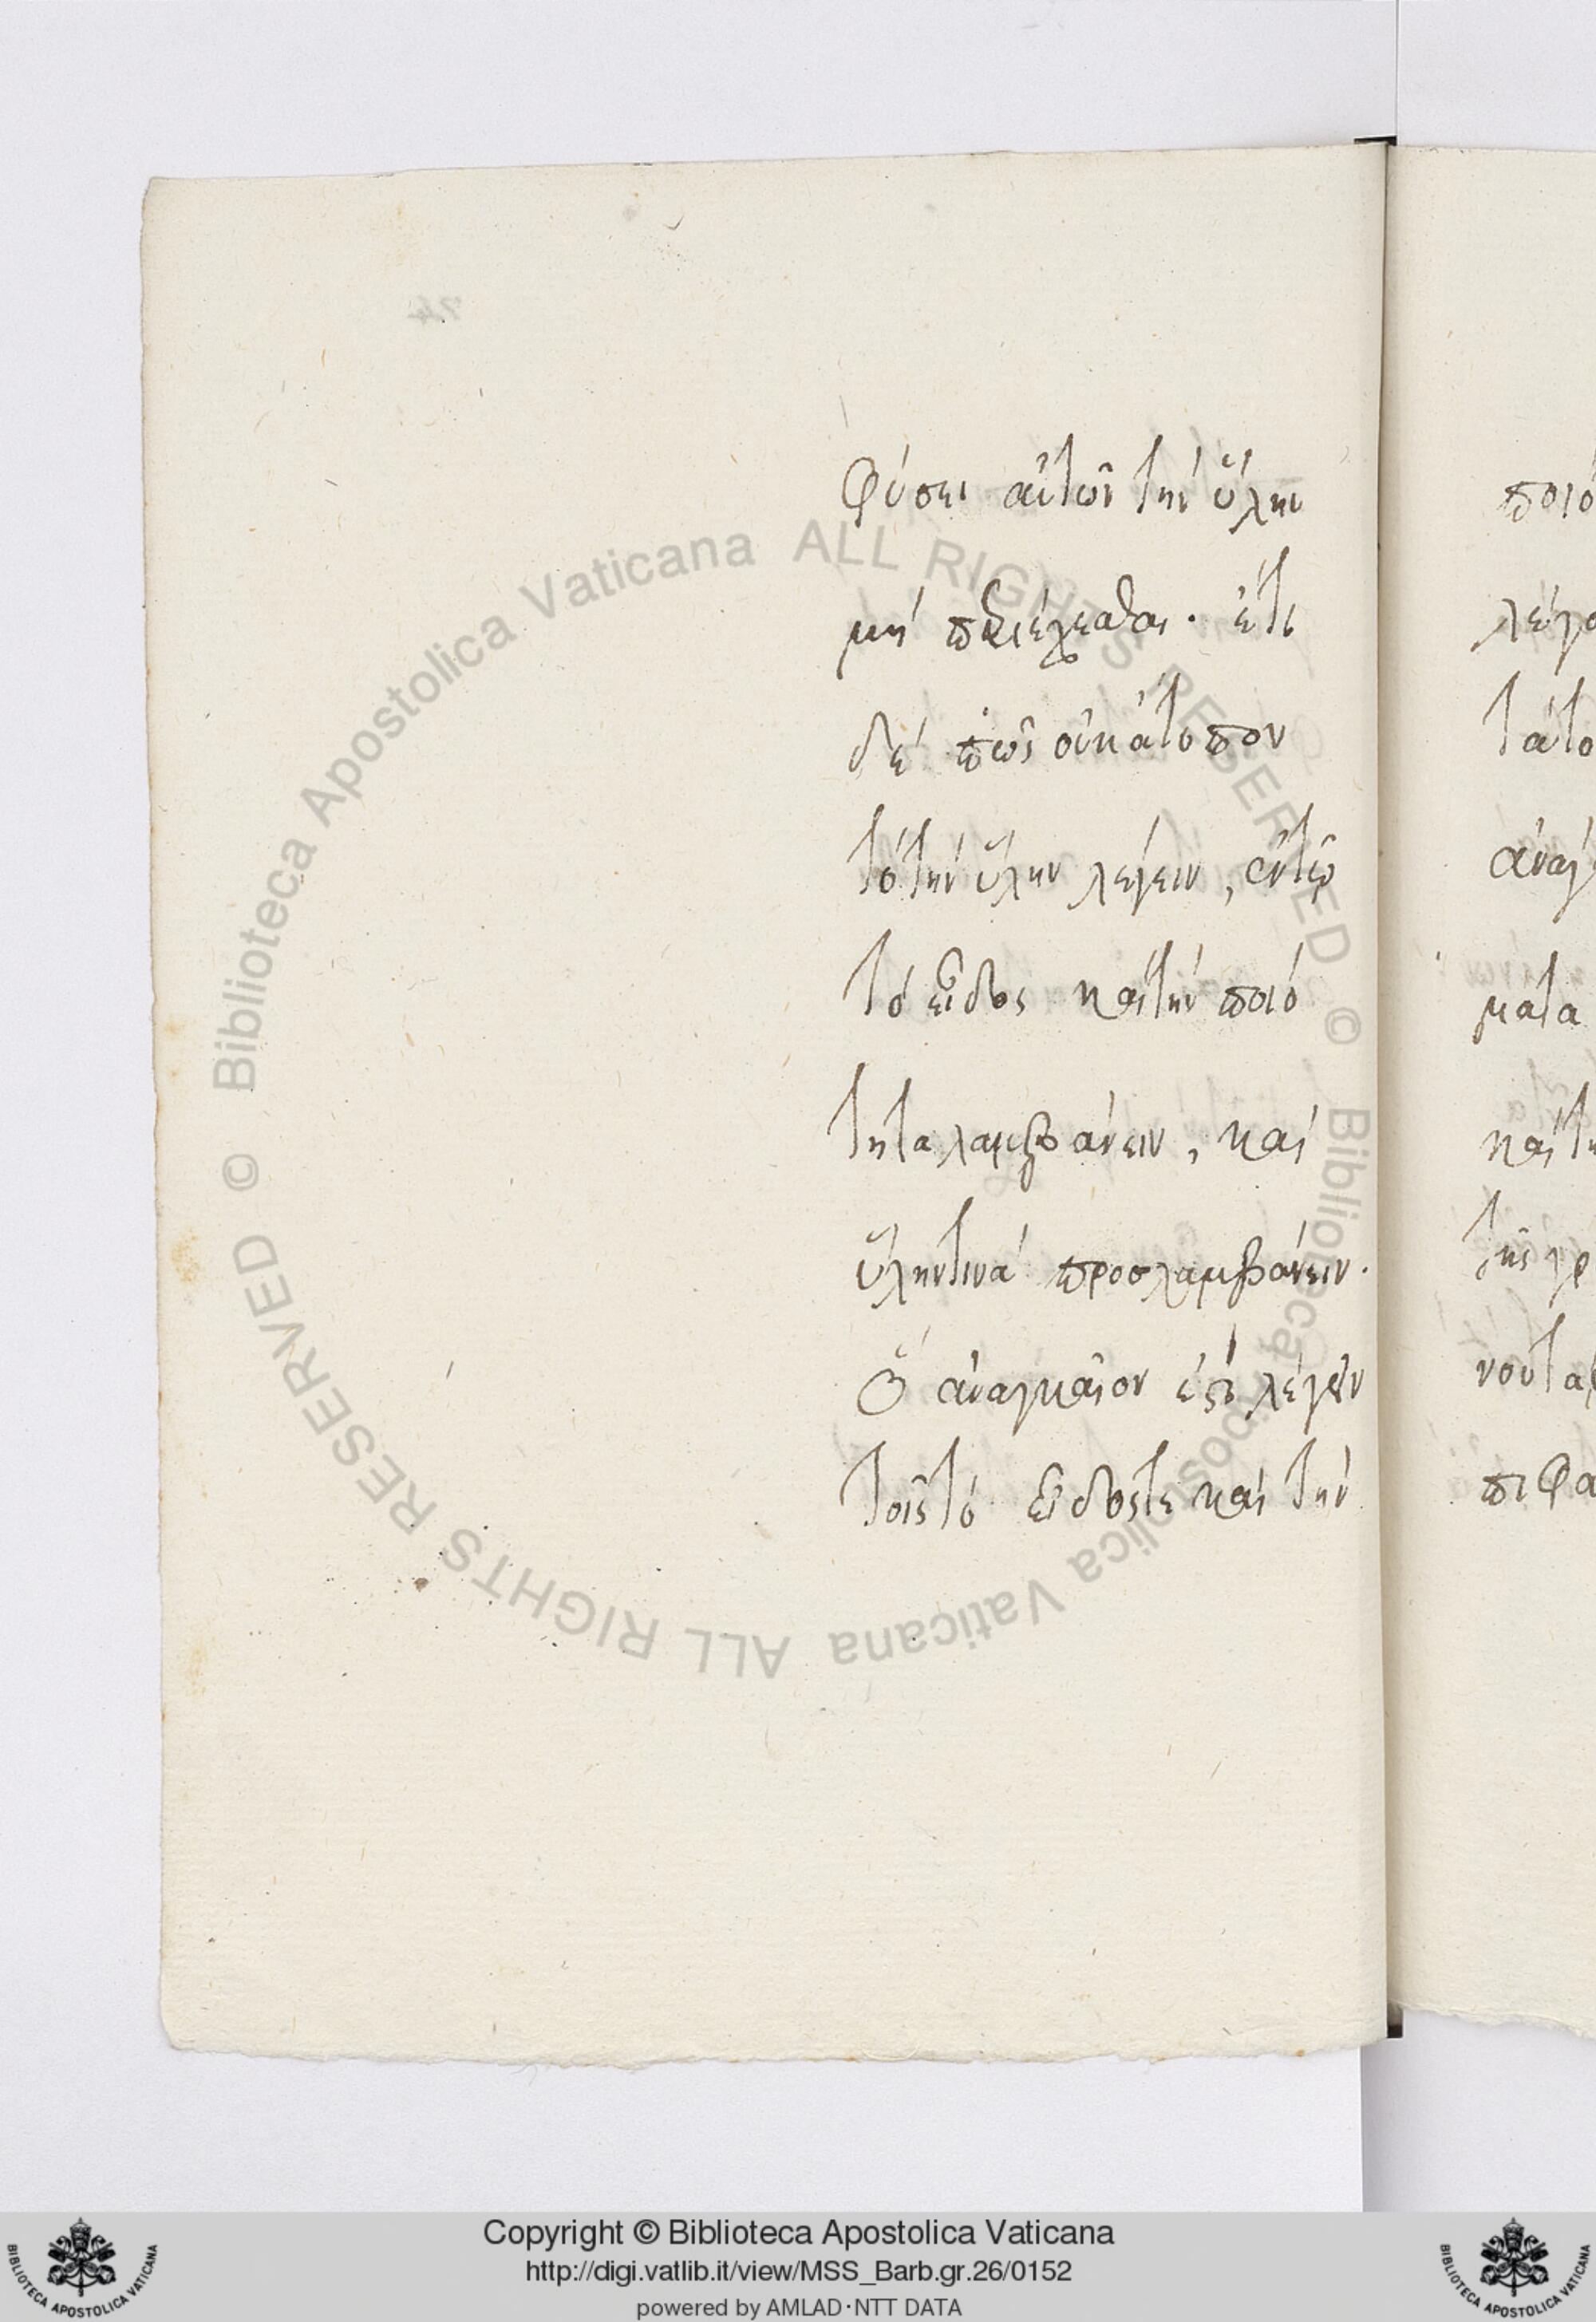 φύσει αὐτῶν τὴν ὕλην
μὴ περιέχεσθαι. ἔτι
δέ πως οὐκ ἄτοπον
τὸ τὴν ὕλην λέγειν, αὐτῷ
τὸ εἶδος καὶ τὴν ποιό
τητα λαμβάνειν, καὶ
ὕλην τινά προσλαμβάνειν.
ἢ ἀναγκαῖον ἐστὶ λέγειν
τοῖς τὸ εἶδος τε καὶ τὴν
ποιό
λέγο
τάτο
ἀναγ
ματα
καὶ τη
τῆς γρ
νοῦτα
πιφα
Biblioteca Apostolica Vaticana ALL RIGHTS RESERVED ©
Biblioteca Apostolica Vaticana ALL RIGHTS RESERVED ©
Copyright © Biblioteca Apostolica Vaticana
http://digi.vatlib.it/view/MSS_Barb.gr.26/0152
powered by AMLAD·NTT DATA
BIBLIOTECA APOSTOLICA VATICANA
BIBLIOTECA APOSTOLICA VATICANA